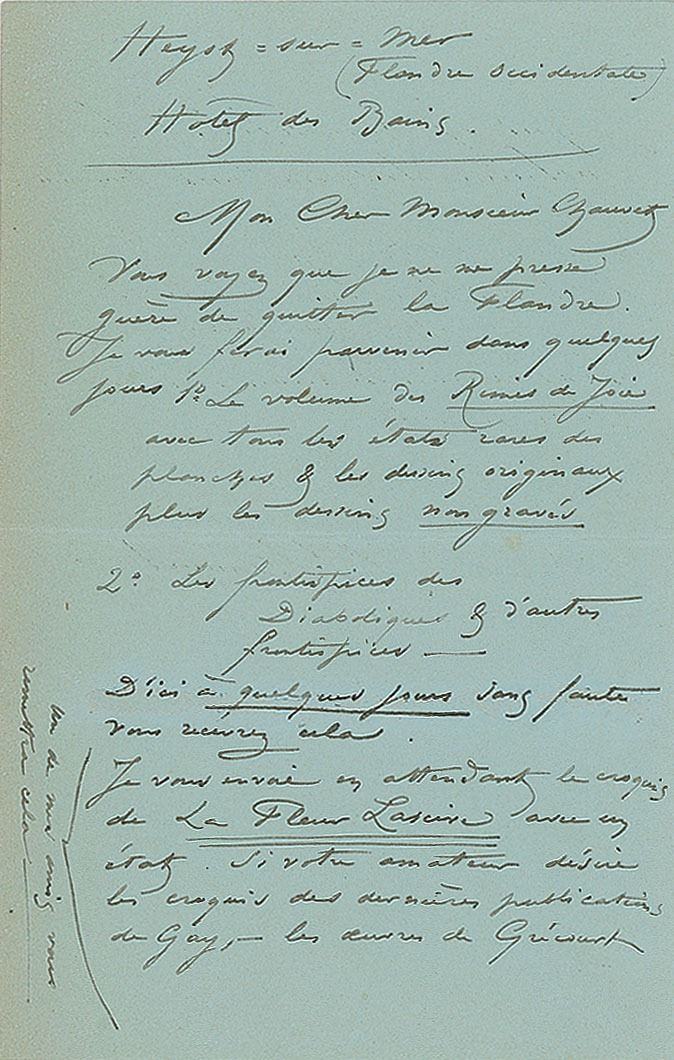 Heyst = sur = Mer
(Flandre Occidentale)
Hôtel des Bains.
Mon Cher Monsieur Chauvet
Vous voyez que je ne me presse
guère de quitter la Flandre.
Je vous ferai parvenir dans quelques
jours 1º Le volume des Rimes de Joie
avec tous les états rares des
planches & les dessins originaux
plus les dessins non gravés
2º Les frontispices des
Diaboliques & d'autres
frontispices —
D'ici à quelques jours sans faute
vous recevrez cela.
Je vous envoie en attendant le croquis
de La Fleur Lascive avec un
état. Si votre amateur désire
les croquis des dernières publications
de Gay, — les œuvres de Grécourt
un de mes amis vous
remettra cela